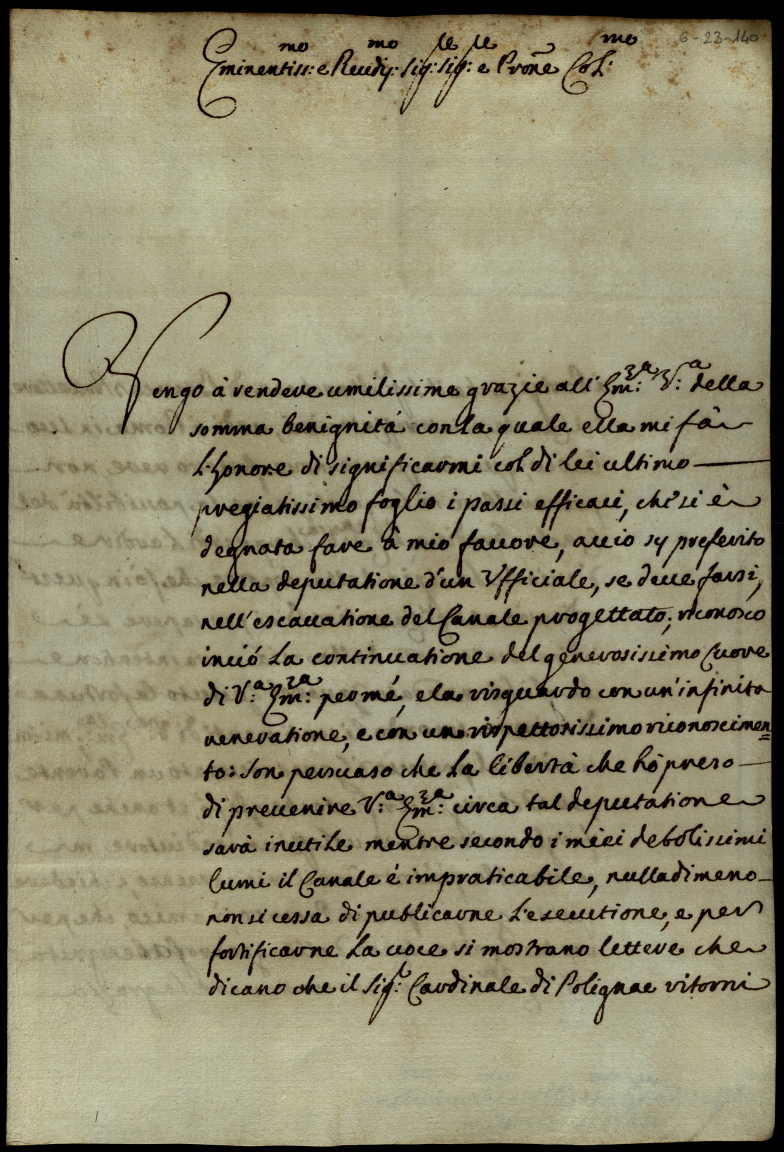 6-23-140
Eminentiss:mo e Reudis:mo Sig:re Sig:re e Prone Col:mo
Vengo à rendere umilissime grazie all' Em:za V:a della
somma benignitá con la quale ella mi fà
l'honore di significarmi col di lei ultimo
pregiatissimo foglio i passi efficaci, che si è
degnata fare à mio fauore, accio sy preferito
nella deputatione d'un Vfficiale, se deue farsi,
nell'escauatione del Canale progettato; riconosco
inciò la continuatione del generosissimo Cuore
di V:a Em:za per mé, e la risguardo con un'infinita
veneratione, e con un rispettosissimo riconoscimen
to: Son persuaso che la libertà che hò preso
di preuenire V:a Em:za circa tal deputatione
sarà inutile mentre secondo i miei debolissimi
lumi il Canale é impraticabile, nulladimeno
non si cessa di publicarne l'esecutione, e per
fortificarne la uoce si mostrano lettere che
dicano che il Sig:r Cardinale di Polignac ritorni